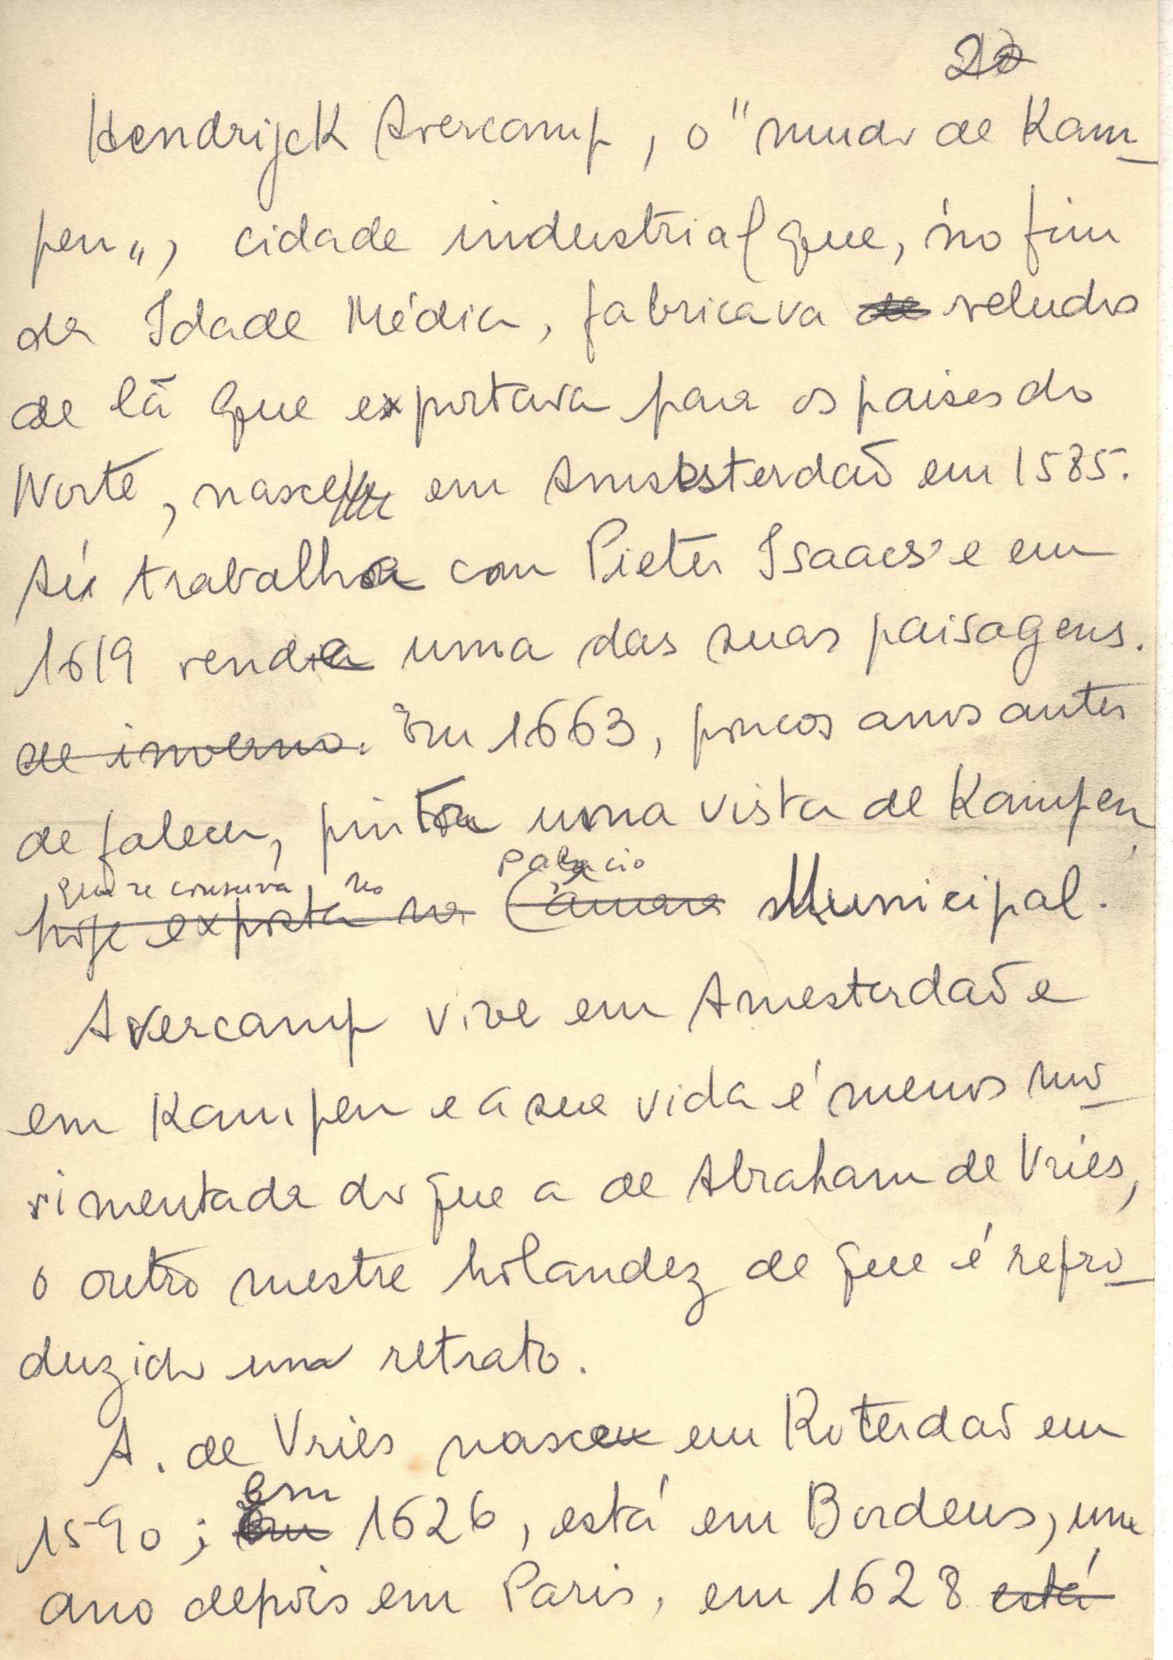 Hendrijck Avercamp, o "mudo de Kam-
pen", cidade industrial que, no fim
da Idade Média, fabricava de veludos
de lã que exportava para os paises do
Norte, nasceu em Amesterdaõ em 1585.
Aí trabalha com Pieter Isaacs e em
1619 vende uma das suas paisagens.
de inverno. Em 1663, poucos anos antes
de falecer, pinta uma vista de Kampen,
que se conserva no palacio
hoje exposta na Câmara Municipal.
Avercamp vive em Amesterdaõ e
em Kampen e a sua vida é menos mo-
vimentada do que a de Abraham de Vries,
o outro mestre holandez de que é repro-
duzido um retrato.
A. de Vries nasceu em Roterdaõ em
em
1590; em 1626, está em Bordeus, um
ano depois em Paris, em 1628 está